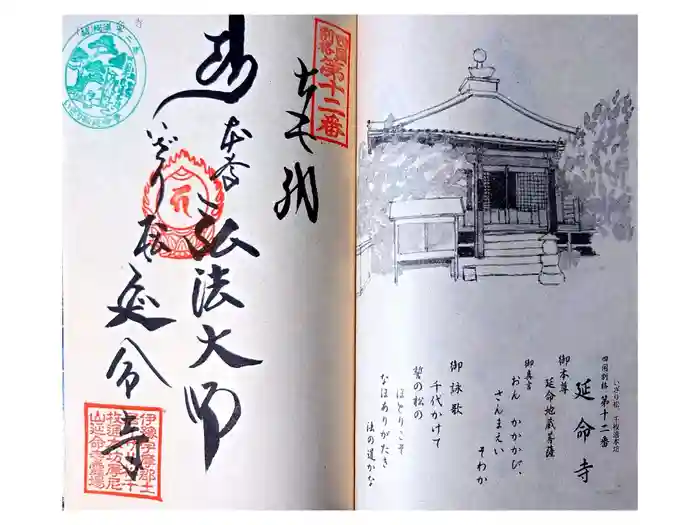 四国
別格
第十二番
奉納
本尊
弘法大師
いざり松
延命寺
いざり松、千枚通本坊
四国別格 第十二番
延命寺
御本尊
延命地蔵菩薩
御真言
おん かかかび、
さんまえい
そわか
御詠歌
千代かけて
誓の松の
ほとりこそ
なほありがたき
法の道かな